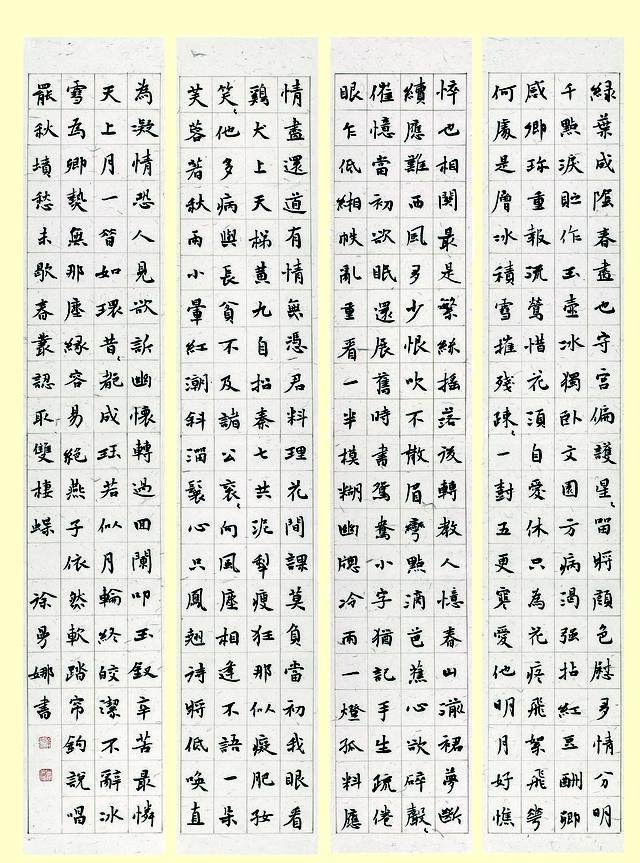 綠葉成陰春盡也守宮偏護星〻留將顏色慰多情分明
千點淚貯作玉壺冰獨臥文園方病渴强拈紅豆酬卿
感卿珍重報流鶯惜花須自愛休只為花疼飛絮飛花
何處是層冰積雪摧殘疎〻一封五更寒愛他明月好憔
悴也相關最是繁絲搖落後轉教人憶春山湔裙夢斷
續應難西風多少恨吹不散眉彎點滴芭蕉心欲碎聲〻
催憶當初欲眠還展舊時書鴛鴦小字猶記手生疏倦
眼乍低緗帙亂重看一半模糊幽牕冷雨一燈孤料應
情盡還道有情無憑君料理花間課莫負當初我眼看
鷄犬上天梯黃九自招秦七共泥犁瘦狂那似癡肥好
笑〻他多病與長貧不及諸公衮〻向風塵相逢不語一朵
芙蓉著秋雨小暈紅潮斜溜鬟心只鳳翹待將低喚直
為凝情恐人見欲訴幽懷轉過回闌叩玉釵辛苦最憐
天上月一昔如環昔〻都成玦若似月輪終皎潔不辭冰
雪為卿熱無那塵緣容易絕燕子依然軟踏帘鉤說唱
罷秋墳愁未歇春叢認取雙棲蝶 徐娜書